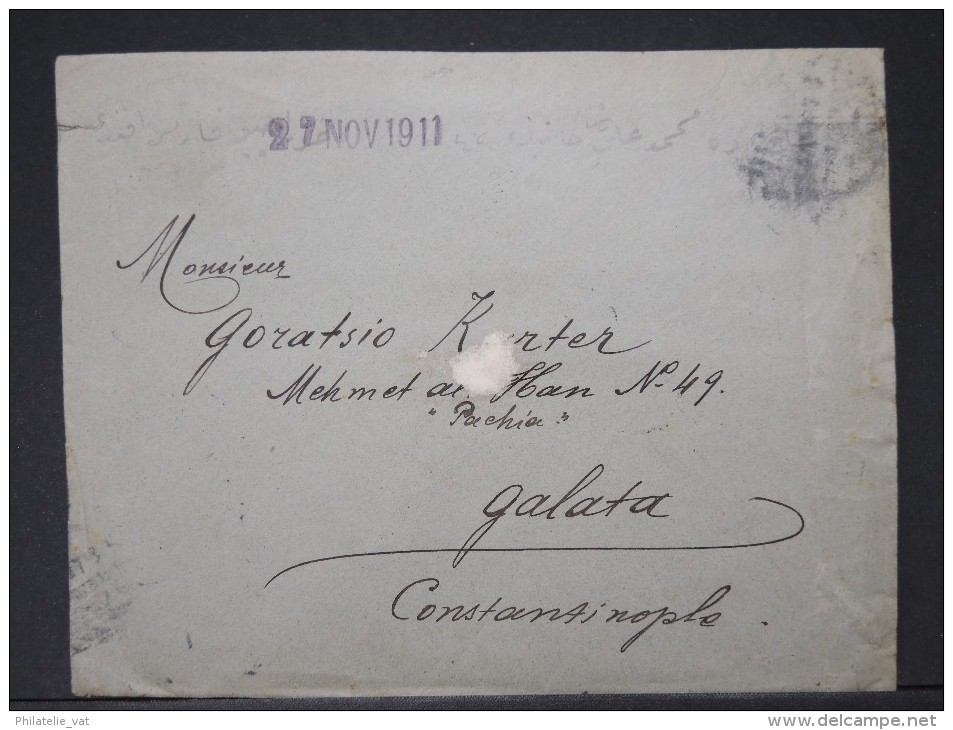 27 NOV 1911
محمد علی
Monsieur
Goratsio
Mehmet Han No 49.
"Pachia"
Galata
Constantinople.
Philatelie_vat
delcampe.net